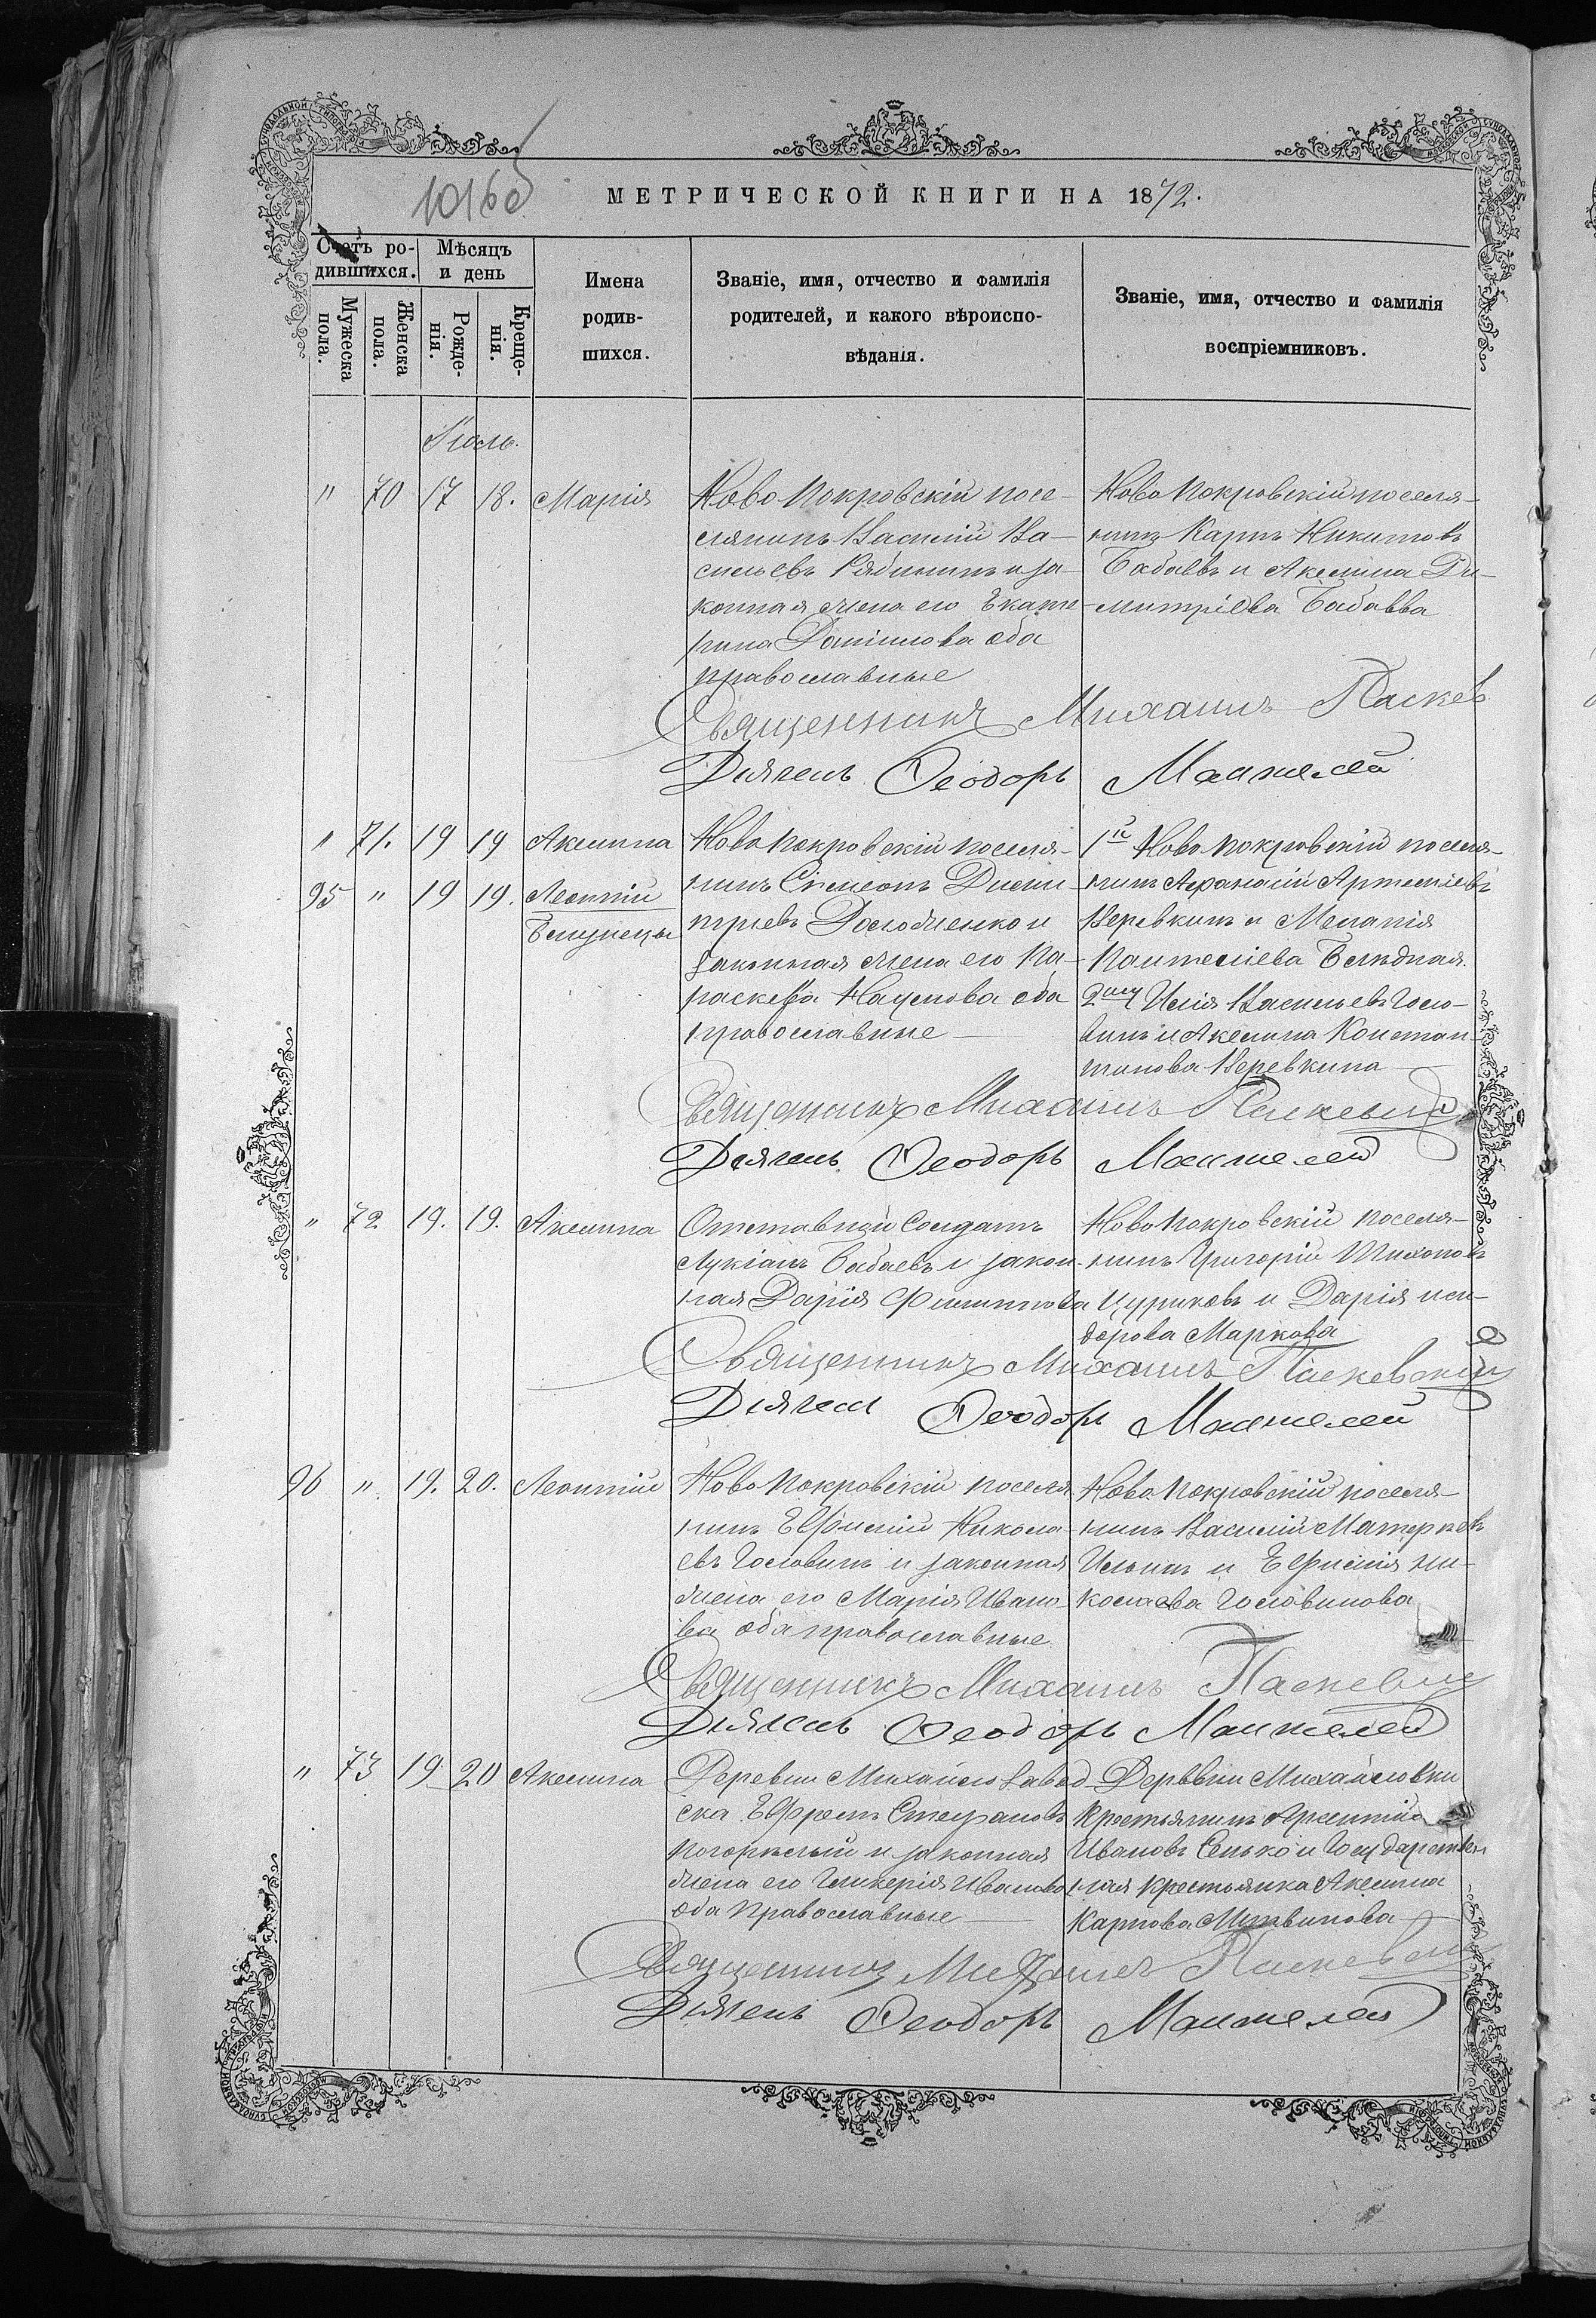 1016 об
МЕТРИЧЕСКОЙ КНИГИ НА 1872.
Счетъ ро-
дившихся.
Мѣсяцъ
и день
Мужеска
пола.
Женска
пола.
Рожде-
нія.
Креще-
нія.
Имена
родив-
шихся.
Званіе, имя, отчество и фамилія
родителей, и какого вѣроиспо-
вѣданія.
Званіе, имя, отчество и фамилія
воспріемниковъ.
Іюль.
" 70 17 18. Марія
Ново Покровскій посе-
лянинъ Василій Ва-
сильевъ Рябининъ и за-
конная жена его Екате-
рина Даніилова оба
православные
Ново Покровскій поселя-
нинъ Карпъ Никитовъ
Бабаевъ и Акелина Ди-
митріева Бабаева
Священникъ Михаилъ Паскев
Дьячекъ Ѳеодоръ Манжелей
" 71. 19 19 Акелина
95 " 19 19. Леонтій
Близнецы
Ново Покровскій поселя-
нинъ Симеонъ Дими-
тріевъ и
законная жена его Па-
раскева Наумова оба
православные
1й Ново Покровскій поселя-
нинъ Афанасій Артеміевъ
Веревкинъ и Меланія
Пантеліева Блѣдная.
2му Илія Васильевъ Голо-
винъ и Акелина Констан-
тинова Веревкина
Священникъ Михаилъ
Дьячекъ Ѳеодоръ Манжелей
" 72 19. 19. Акелина
Отставной Солдатъ
Лукіанъ Бабаевъ и закон-
ная Дарія Филиппова
Ново Покровскій поселя-
нинъ Григорій Тихоновъ
Цуриковъ и Дарія Иси-
дорова Маркова
Священникъ Михаилъ Паскевскій
Дьячекъ Ѳеодоръ Манжелей
96 " 19. 20. Леонтій
Ново Покровскій поселя
нинъ Ефимій Никола-
евъ Головинъ и законная
жена его Марія Ивано-
ва оба православные
Ново Покровскій поселя-
нинъ Василій
Ильинъ и Ефимія Ни-
колаева Головинова
Священникъ Михаилъ
Дьячекъ Ѳеодоръ Манжелей
" 73 19 20 Акелина
Деревни Михайло Завод-
ска Ефремъ Стефановъ
Погорѣлый и законная
жена его Гликерія Иванова
оба Православные
Деревни Михайловки
Крестьянинъ
Ивановъ Сенько и Государствен
ная крестьянка Акелина
Карпова Литвинова
Священникъ Михаилъ
Дьячекъ Ѳеодоръ Манжелей